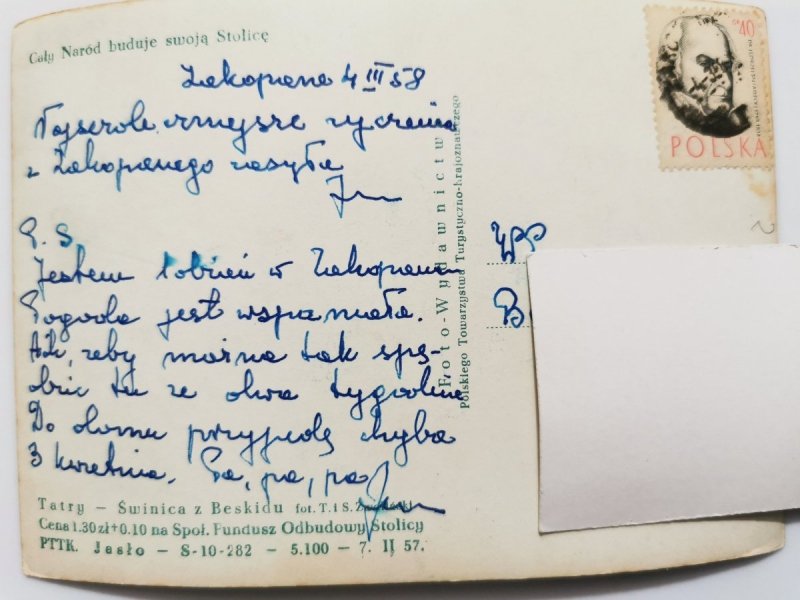 Cały Naród buduje swoją Stolicę
Zakopane 4 III 58
Najserdeczniejsze życzenia
z Zakopanego zasyła
Jan
P. S.
Jestem 1 dzień w Zakopanem
Pogoda jest wspaniała.
Ach, żeby można tak spę-
dzić tu ze dwa tygodnie
Do domu przyjadę chyba
3 kwietnia. Pa, pa, pa
Jan
Tatry — Świnica z Beskidu fot. T. i S.
Cena 1.30 zł + 0.10 na Społ. Fundusz Odbudowy Stolicy
PTTK. Jasło — S-10-282 — 5.100 — 7. II 57.
Foto-Wydawnictwo
Polskiego Towarzystwa Turystyczno-Krajoznawczego
40
POLSKA
WPP